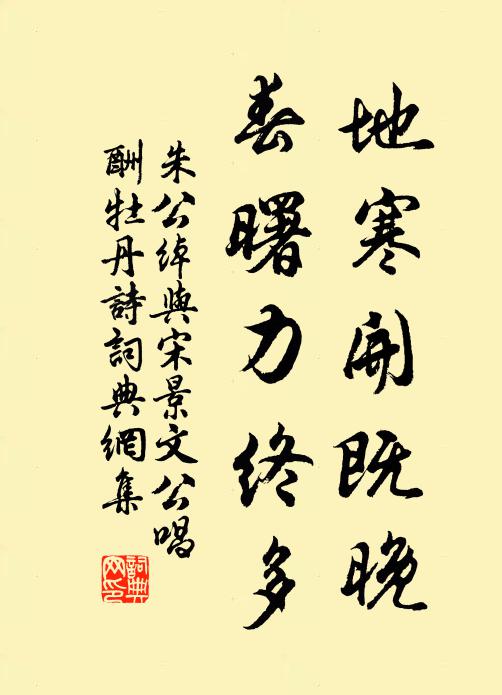 地寒開既晚
春曙力終多
朱公綽與宋景文公唱
酬牡丹詩詞典網集
詞典网印